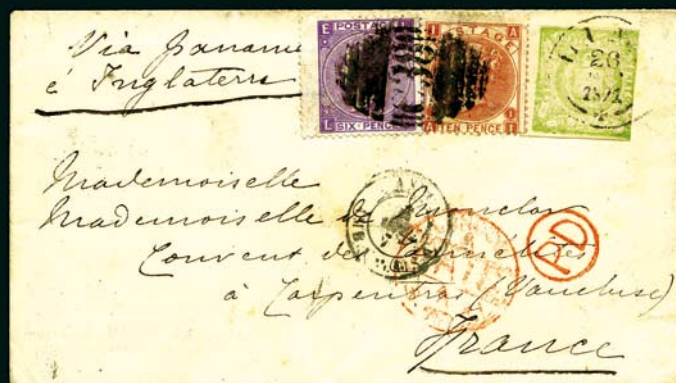 Via Panama
é Inglaterra
E POSTAGE L
L SIX-PENCE E
I POSTAGE A
A TEN PENCE I
26
1871
Mademoiselle
Mademoiselle de Monclar
Couvent des Carmélites
à Carpentras (Vaucluse)
France
PD